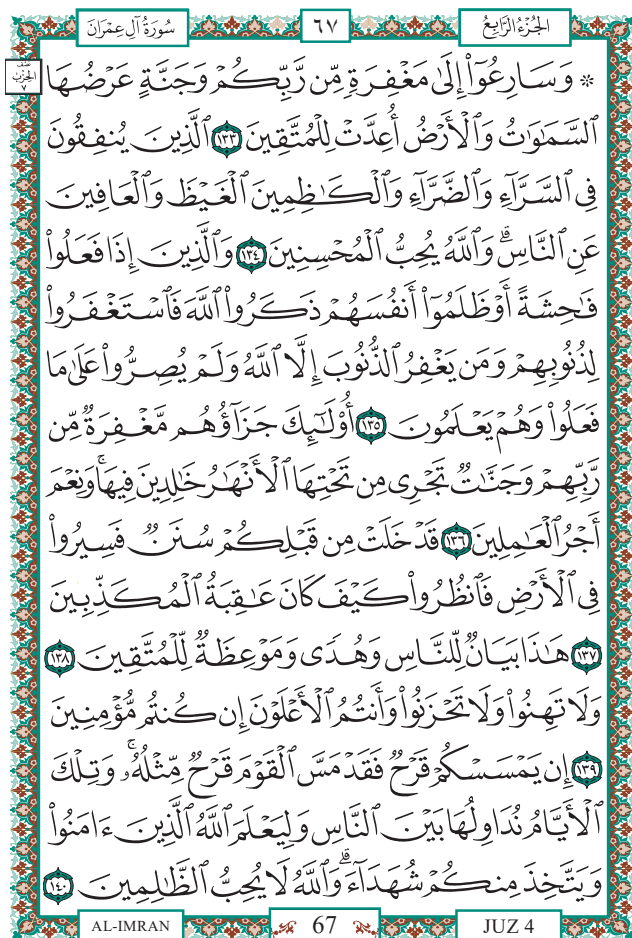 الجُزْءُ الرَّابِعُ
٦٧
سُورَةُ آلِ عِمْرَانَ
نصف
الحزب
٧
۞ وَسَارِعُوٓاْ إِلَىٰ مَغْفِرَةٖ مِّن رَّبِّكُمْ وَجَنَّةٍ عَرْضُهَا
ٱلسَّمَٰوَٰتُ وَٱلْأَرْضُ أُعِدَّتْ لِلْمُتَّقِينَ ١٣٣ ٱلَّذِينَ يُنفِقُونَ
فِي ٱلسَّرَّآءِ وَٱلضَّرَّآءِ وَٱلْكَٰظِمِينَ ٱلْغَيْظَ وَٱلْعَافِينَ
عَنِ ٱلنَّاسِۗ وَٱللَّهُ يُحِبُّ ٱلْمُحْسِنِينَ ١٣٤ وَٱلَّذِينَ إِذَا فَعَلُواْ
فَٰحِشَةً أَوْ ظَلَمُوٓاْ أَنفُسَهُمْ ذَكَرُواْ ٱللَّهَ فَٱسْتَغْفَرُواْ
لِذُنُوبِهِمْ وَمَن يَغْفِرُ ٱلذُّنُوبَ إِلَّا ٱللَّهُ وَلَمْ يُصِرُّواْ عَلَىٰ مَا
فَعَلُواْ وَهُمْ يَعْلَمُونَ ١٣٥ أُوْلَٰٓئِكَ جَزَآؤُهُم مَّغْفِرَةٞ مِّن
رَّبِّهِمْ وَجَنَّٰتٞ تَجْرِي مِن تَحْتِهَا ٱلْأَنْهَٰرُ خَٰلِدِينَ فِيهَاۚ وَنِعْمَ
أَجْرُ ٱلْعَٰمِلِينَ ١٣٦ قَدْ خَلَتْ مِن قَبْلِكُمْ سُنَنٞ فَسِيرُواْ
فِي ٱلْأَرْضِ فَٱنظُرُواْ كَيْفَ كَانَ عَٰقِبَةُ ٱلْمُكَذِّبِينَ
١٣٧ هَٰذَا بَيَانٞ لِّلنَّاسِ وَهُدٗى وَمَوْعِظَةٞ لِّلْمُتَّقِينَ ١٣٨
وَلَا تَهِنُواْ وَلَا تَحْزَنُواْ وَأَنتُمُ ٱلْأَعْلَوْنَ إِن كُنتُم مُّؤْمِنِينَ
١٣٩ إِن يَمْسَسْكُمْ قَرْحٞ فَقَدْ مَسَّ ٱلْقَوْمَ قَرْحٞ مِّثْلُهُۥۚ وَتِلْكَ
ٱلْأَيَّامُ نُدَاوِلُهَا بَيْنَ ٱلنَّاسِ وَلِيَعْلَمَ ٱللَّهُ ٱلَّذِينَ ءَامَنُواْ
وَيَتَّخِذَ مِنكُمْ شُهَدَآءَۗ وَٱللَّهُ لَا يُحِبُّ ٱلظَّٰلِمِينَ ١٤٠
AL-IMRAN
67
JUZ 4